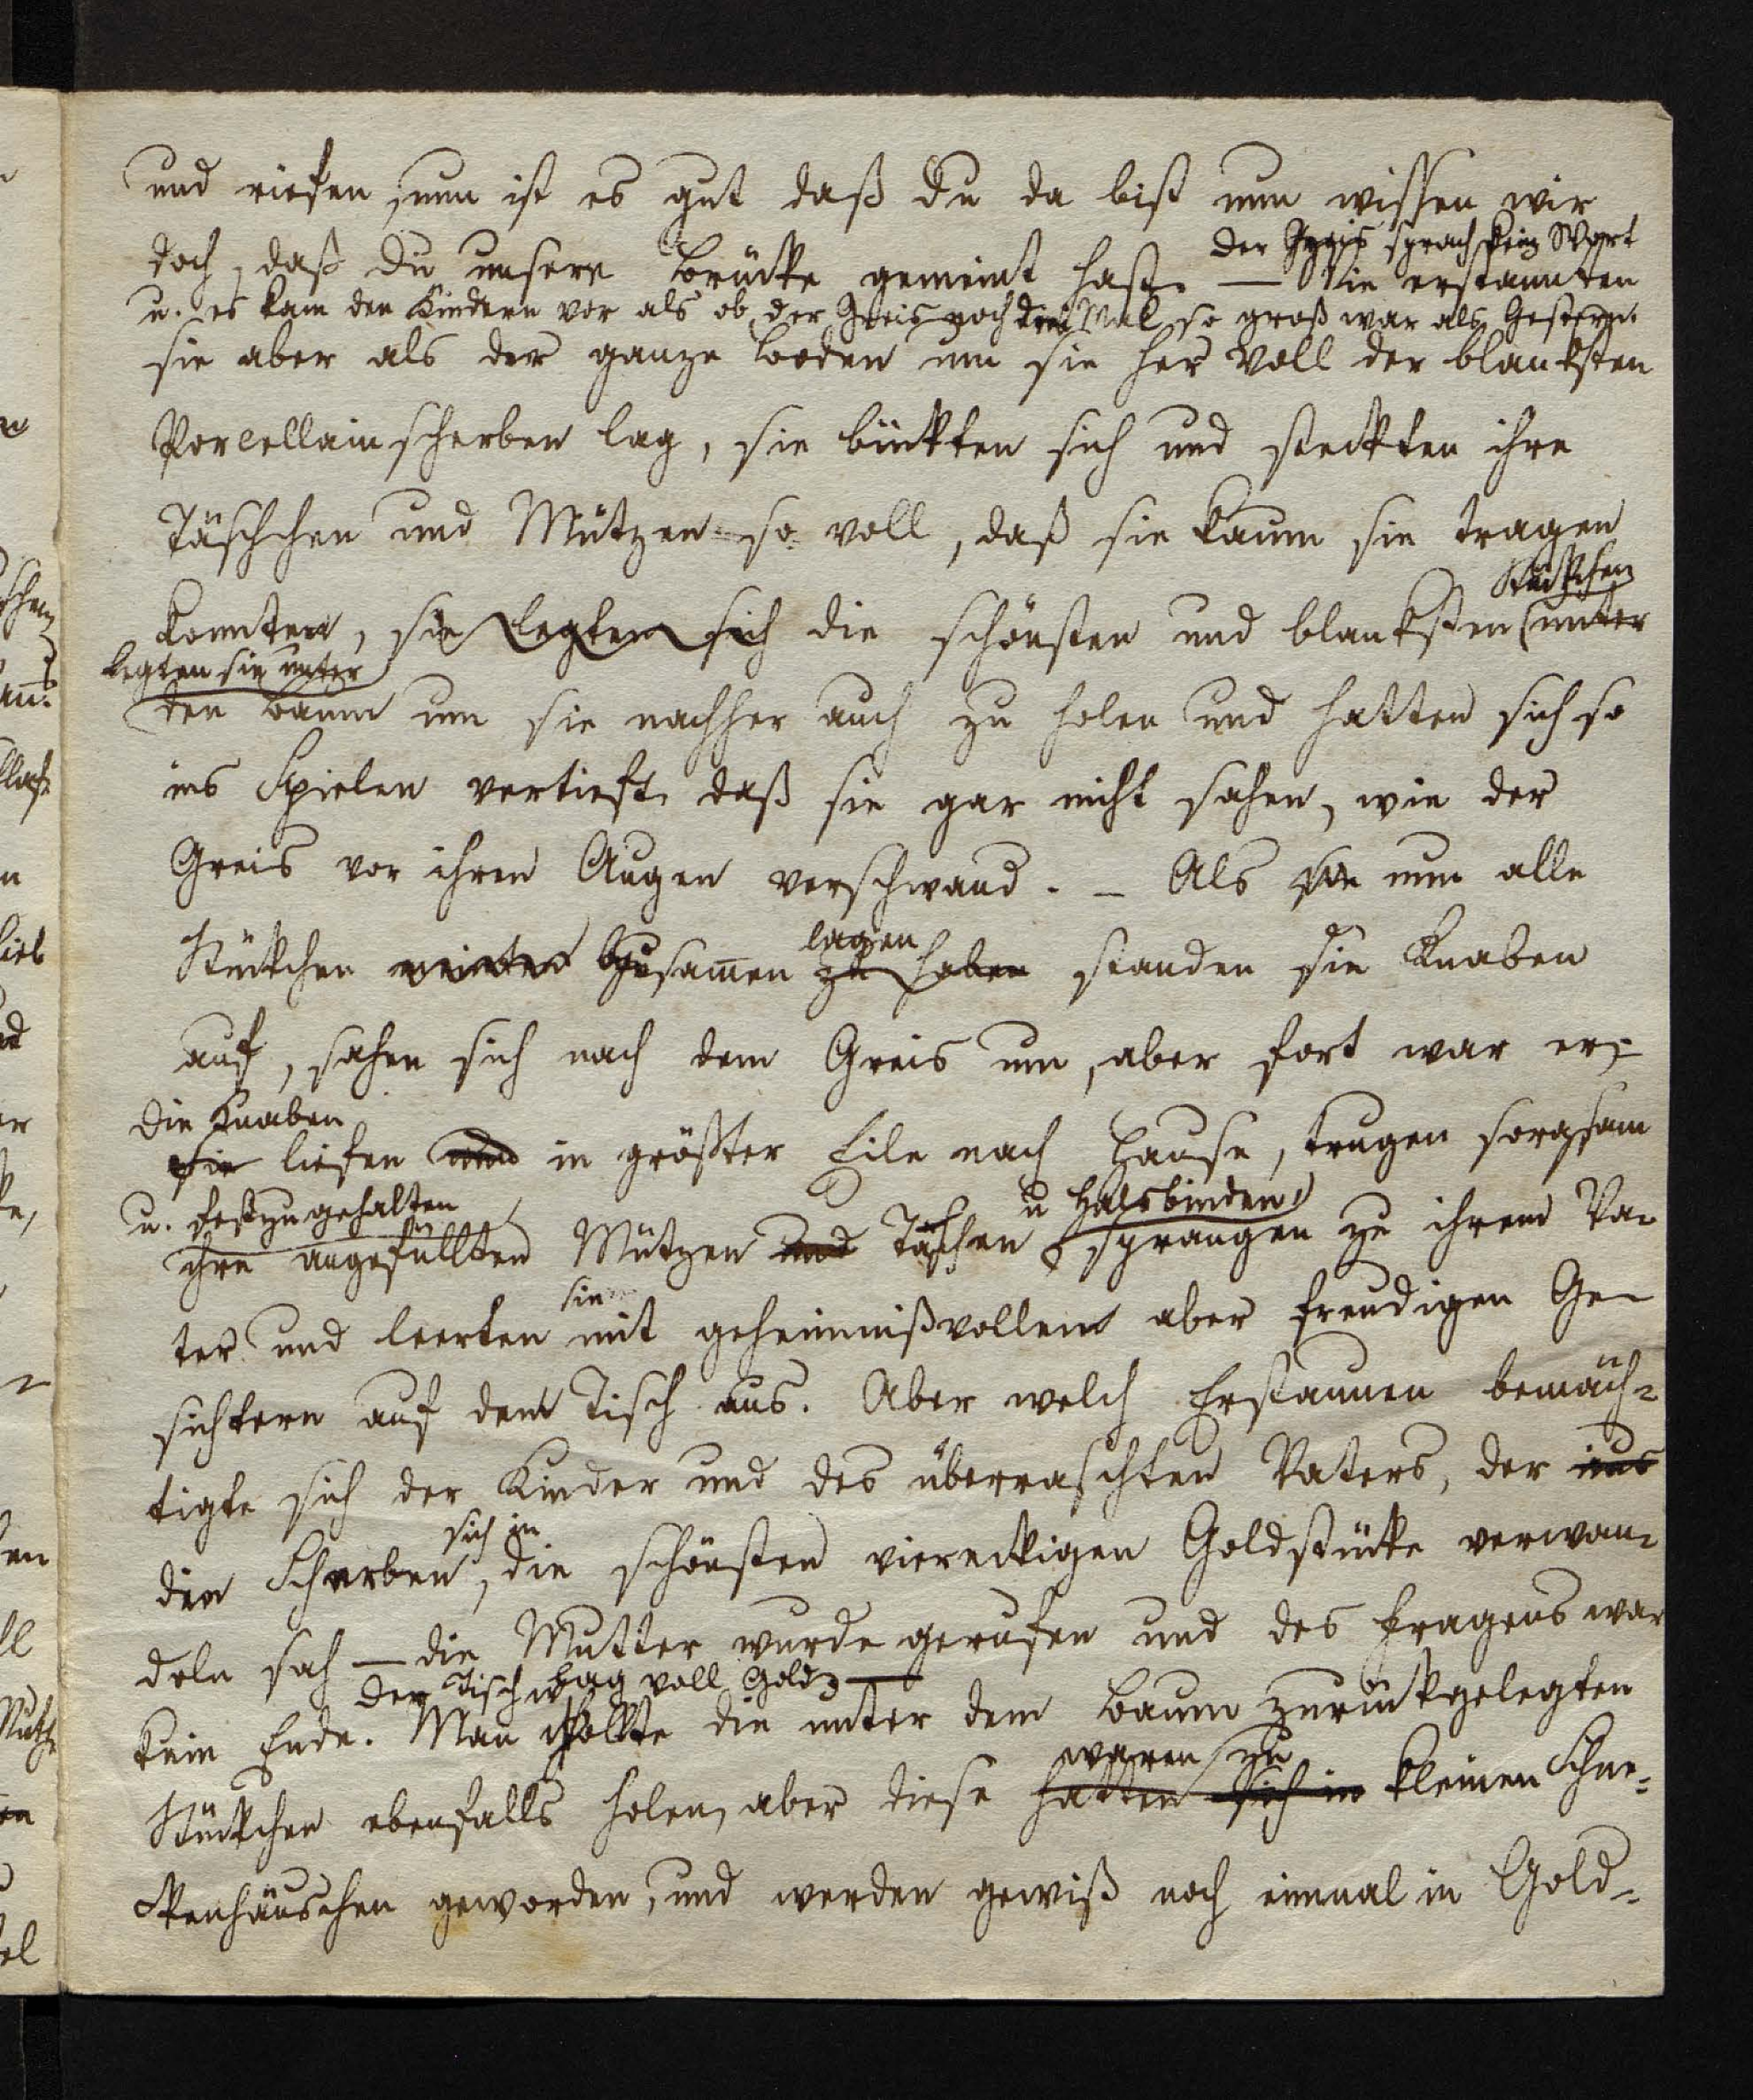 und riefen, nun ist es gut daß du da bist nun wissen wir
der Greis sprach kein Wort
doch, daß du unsere Brücke gemeint hast. — Wie erstaunten
u. es kam den Kindern vor als ob der Greis noch drei Mal so groß war als Gestern.
sie aber als der ganze Boden um sie her voll der blanksten
Porcellainscherben lag, sie bückten sich und steckten ihre
Täschchen und Mützen so voll, daß sie kaum sie tragen
Stückchen
konnten, sie legten sich die schönsten und blanksten unter
legten sie unter
den Baum um sie nachher auch zu holen und hatten sich so
ins Spielen vertieft daß sie gar nicht sahen, wie der
Greis vor ihren Augen verschwand. — Als sie nun alle
lagen
Stückchen meinten beysam̄en zu haben standen die Knaben
auf, sahen sich nach dem Greis um, aber fort war er,
die Knaben
sie liefen und in größter Eile nach Hause, trugen sorgsam
u. fest zugehalten
u Halsbinden
ihre angefüllten Mützen und Taschen sprangen zu ihrem Va-
sie
ter und leerten mit geheimnißvollem aber freudigen Ge-
sichtern auf dem Tisch aus. Aber welch Erstaunen bemäch-
tigte sich der Kinder und des überraschten Vaters, der aus
sich in
die Scherben, die schönsten viereckigen Goldstücke verwan-
deln sah — die Mutter wurde gerufen und des Fragens war
der Tisch lag voll Gold —
kein Ende. Man wollte die unter dem Baum zurückgelegten
waren zu
Stückchen ebenfalls holen, aber diese hatten sich in kleinen Schne-
ckenhäuschen geworden, und werden gewiß noch einmal in Gold-